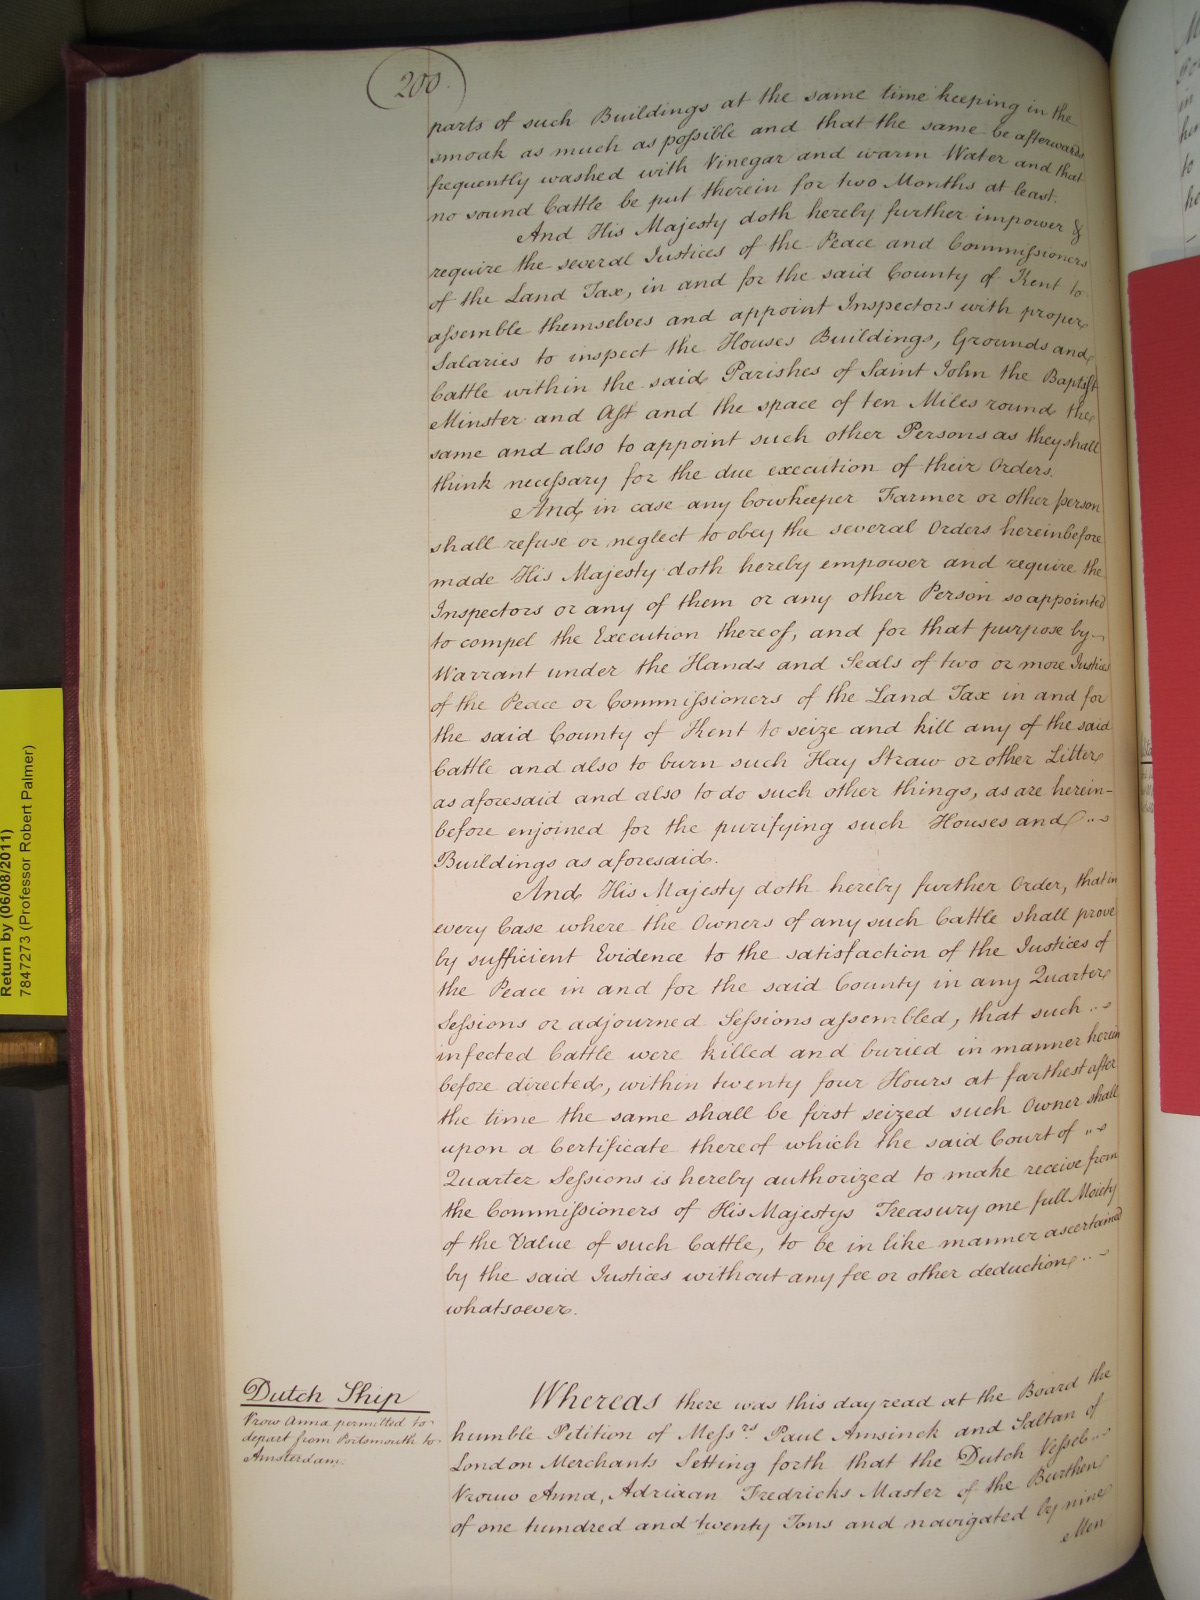 200.
parts of such Buildings at the same time keeping in the
smoak as much as possible and that the same be afterwards
frequently washed with Vinegar and warm Water and that
no sound Cattle be put therein for two Months at least.
And His Majesty doth hereby further impower &
require the several Justices of the Peace and Commissioners
of the Land Tax, in and for the said County of Kent to
assemble themselves and appoint Inspectors with proper
Salaries to inspect the Houses Buildings, Grounds and
Cattle within the said Parishes of Saint John the Baptist
Minster and Ash and the space of ten Miles round the
same and also to appoint such other Persons as they shall
think necessary for the due execution of their Orders.
And in case any Cowkeeper Farmer or other person
shall refuse or neglect to obey the several Orders hereinbefore
made His Majesty doth hereby empower and require the
Inspectors or any of them or any other Person so appointed
to compel the Execution thereof, and for that purpose by
Warrant under the Hands and Seals of two or more Justices
of the Peace or Commissioners of the Land Tax in and for
the said County of Kent to seize and kill any of the said
Cattle and also to burn such Hay Straw or other Litter
as aforesaid and also to do such other things, as are herein-
before enjoined for the purifying such Houses and
Buildings as aforesaid.
And His Majesty doth hereby further Order, that in
every Case where the Owners of any such Cattle shall prove
by sufficient Evidence to the satisfaction of the Justices of
the Peace in and for the said County in any Quarter
Sessions or adjourned Sessions assembled, that such
infected Cattle were killed and buried in manner herein
before directed, within twenty four Hours at farthest after
the time the same shall be first seized such Owner shall
upon a Certificate thereof which the said Court of
Quarter Sessions is hereby authorized to make receive from
the Commissioners of His Majestys Treasury one full Moiety
of the Value of such Cattle, to be in like manner ascertained
by the said Justices without any fee or other deduction
whatsoever.
Dutch Ship
Vrow Anna permitted to
depart from Portsmouth to
Amsterdam.
Whereas there was this day read at the Board the
humble Petition of Messrs. Paul Amsinck and Saltan of
London Merchants Setting forth that the Dutch Vessel
Vrouw Anna, Adriaan Fredricks Master of the Burthen
of one hundred and twenty Tons and navigated by nine
Men
Return by (06/08/2011)
7847273 (Professor Robert Palmer)